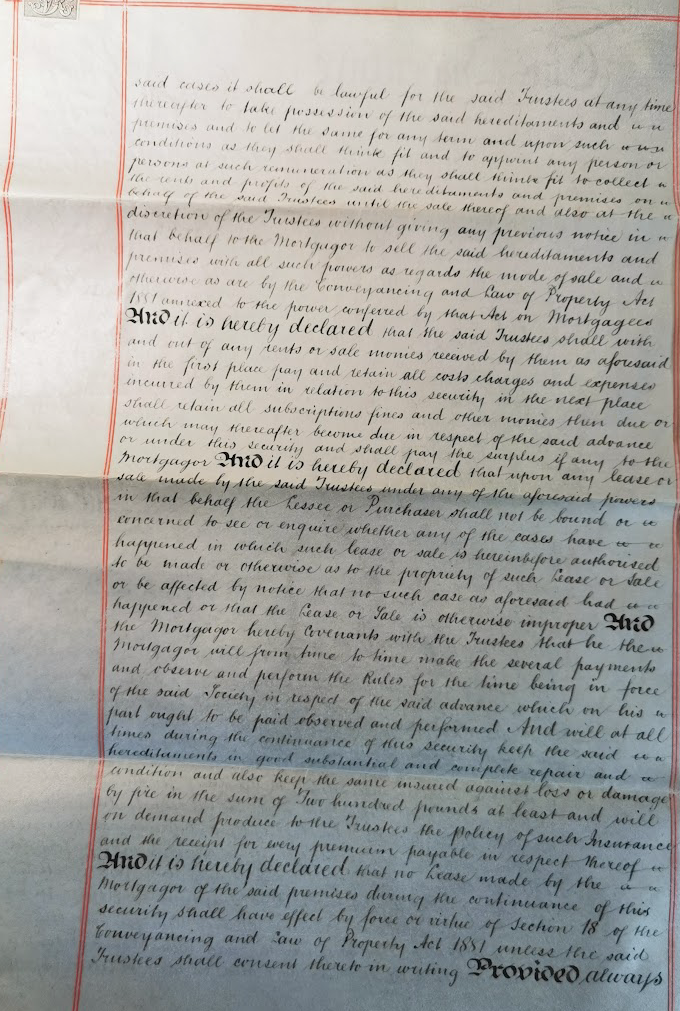 said cases it shall be lawful for the said Trustees at any time
thereafter to take possession of the said hereditaments and
premises and to let the same for any term and upon such
conditions as they shall think fit and to appoint any person or
persons at such remuneration as they shall think fit to collect
the rents and profits of the said hereditaments and premises on
behalf of the said Trustees until the sale thereof and also at the
discretion of the Trustees without giving any previous notice in
that behalf to the Mortgagor to sell the said hereditaments and
premises with all such powers as regards the mode of sale and
otherwise as are by the Conveyancing and Law of Property Act
1881 annexed to the power conferred by that Act on Mortgagees
And it is hereby declared that the said Trustees shall with
and out of any rents or sale monies received by them as aforesaid
in the first place pay and retain all costs charges and expenses
incurred by them in relation to this security in the next place
shall retain all subscriptions fines and other monies then due or
which may thereafter become due in respect of the said advance
or under this security and shall pay the surplus if any to the
Mortgagor And it is hereby declared that upon any lease or
sale made by the said Trustees under any of the aforesaid powers
in that behalf the Lessee or Purchaser shall not be bound or
concerned to see or enquire whether any of the cases have
happened in which such lease or sale is hereinbefore authorised
to be made or otherwise as to the propriety of such Lease or Sale
or be affected by notice that no such case as aforesaid had
happened or that the Lease or Sale is otherwise improper And
the Mortgagor hereby Covenants with the Trustees that he the
Mortgagor will from time to time make the several payments
and observe and perform the Rules for the time being in force
of the said Society in respect of the said advance which on his
part ought to be paid observed and performed And will at all
times during the continuance of this security keep the said
hereditaments in good substantial and complete repair and
condition and also keep the same insured against loss or damage
by fire in the sum of Two hundred pounds at least and will
on demand produce to the Trustees the Policy of such Insurance
and the receipt for every premium payable in respect thereof
And it is hereby declared that no Lease made by the
Mortgagor of the said premises during the continuance of this
security shall have effect by force or virtue of Section 18 of the
Conveyancing and Law of Property Act 1881 unless the said
Trustees shall consent thereto in writing Provided always